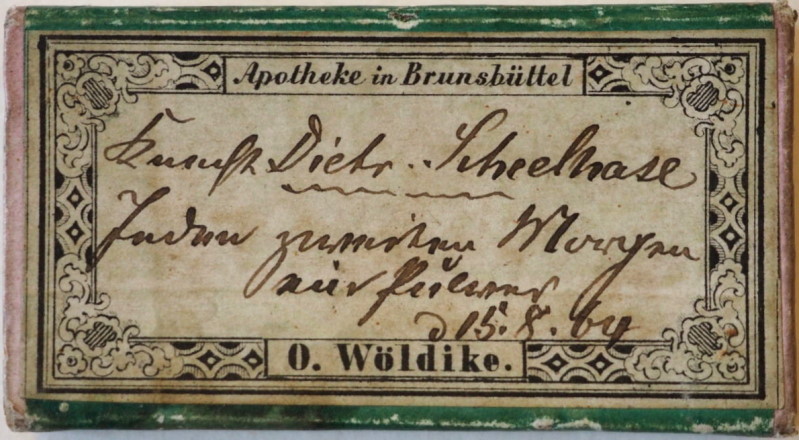 Apotheke in Brunsbüttel
Knecht Dietr. Scheelhase
Jeden zweiten Morgen
ein Pulver
d 15. 8. 64
O. Wöldike.